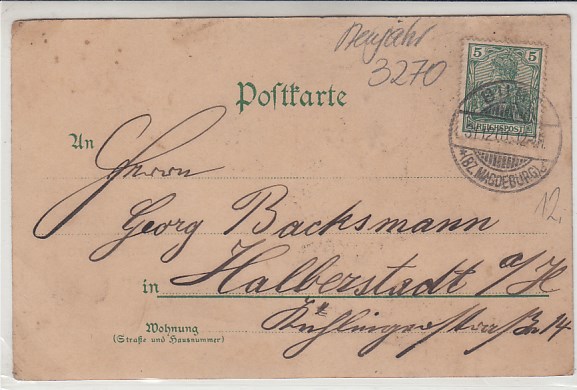 Neujahr
3270
5 5
REICHSPOST
BURG
31.12.01.12-1N.
*(BZ. MAGDEBURG)c
Postkarte
An
Herrn
12,
Georg Backsmann
in Halberstadt a/H
Wohnung
(Straße und Hausnummer)
Kühlingerstraße 14